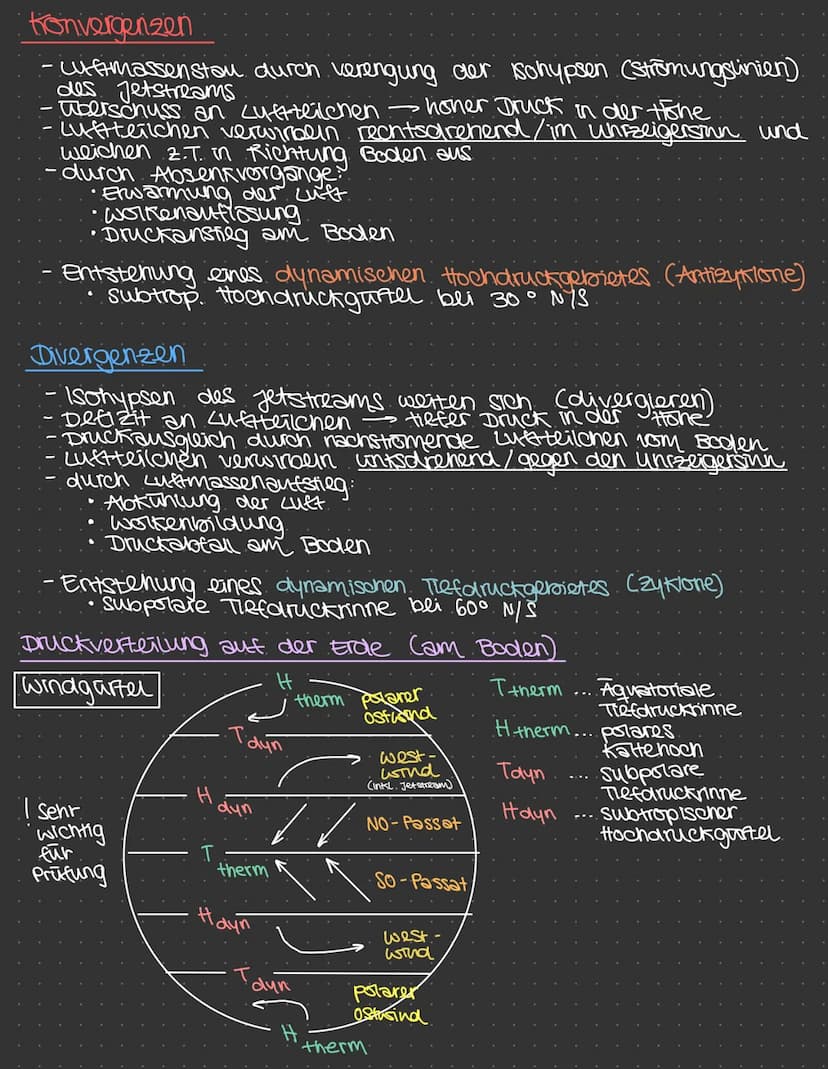 Konvergenzen
- Luftmassenstau durch Verengung der Isohypsen (Strömungslinien)
des Jetstreams
- Überschuss an Luftteilchen → hoher Druck in der Höhe
- Luftteilchen verwirbeln rechtsdrehend / im Uhrzeigersinn und
weichen z.T. in Richtung Boden aus
- durch Absenkvorgänge:
• Erwärmung der Luft
• Wolkenauflösung
• Druckanstieg am Boden
- Entstehung eines dynamischen Hochdruckgebietes (Antizyklone)
• subtrop. Hochdruckgürtel bei 30° N/S
Divergenzen
- Isohypsen des Jetstreams weiten sich (divergieren)
- Defizit an Luftteilchen → tiefer Druck in der Höhe
- Druckausgleich durch nachströmende Luftteilchen vom Boden
- Luftteilchen verwirbeln linksdrehend / gegen den Uhrzeigersinn
- durch Luftmassenaufstieg:
• Abkühlung der Luft
• Wolkenbildung
• Druckabfall am Boden
- Entstehung eines dynamischen Tiefdruckgebietes (Zyklone)
• subpolare Tiefdruckrinne bei 60° N/S
Druckverteilung auf der Erde (am Boden)
Windgürtel
H therm
polarer
Ostwind
T dyn
West-
wind
(inkl. Jetstream)
H dyn
NO-Passat
T therm
SO-Passat
H dyn
West-
wind
T dyn
polarer
Ostwind
H therm
! Sehr
wichtig
für
Prüfung
T therm ... Äquatoriale
Tiefdruckrinne
H therm ... polares
Kältehoch
T dyn ... subpolare
Tiefdruckrinne
H dyn ... subtropischer
Hochdruckgürtel